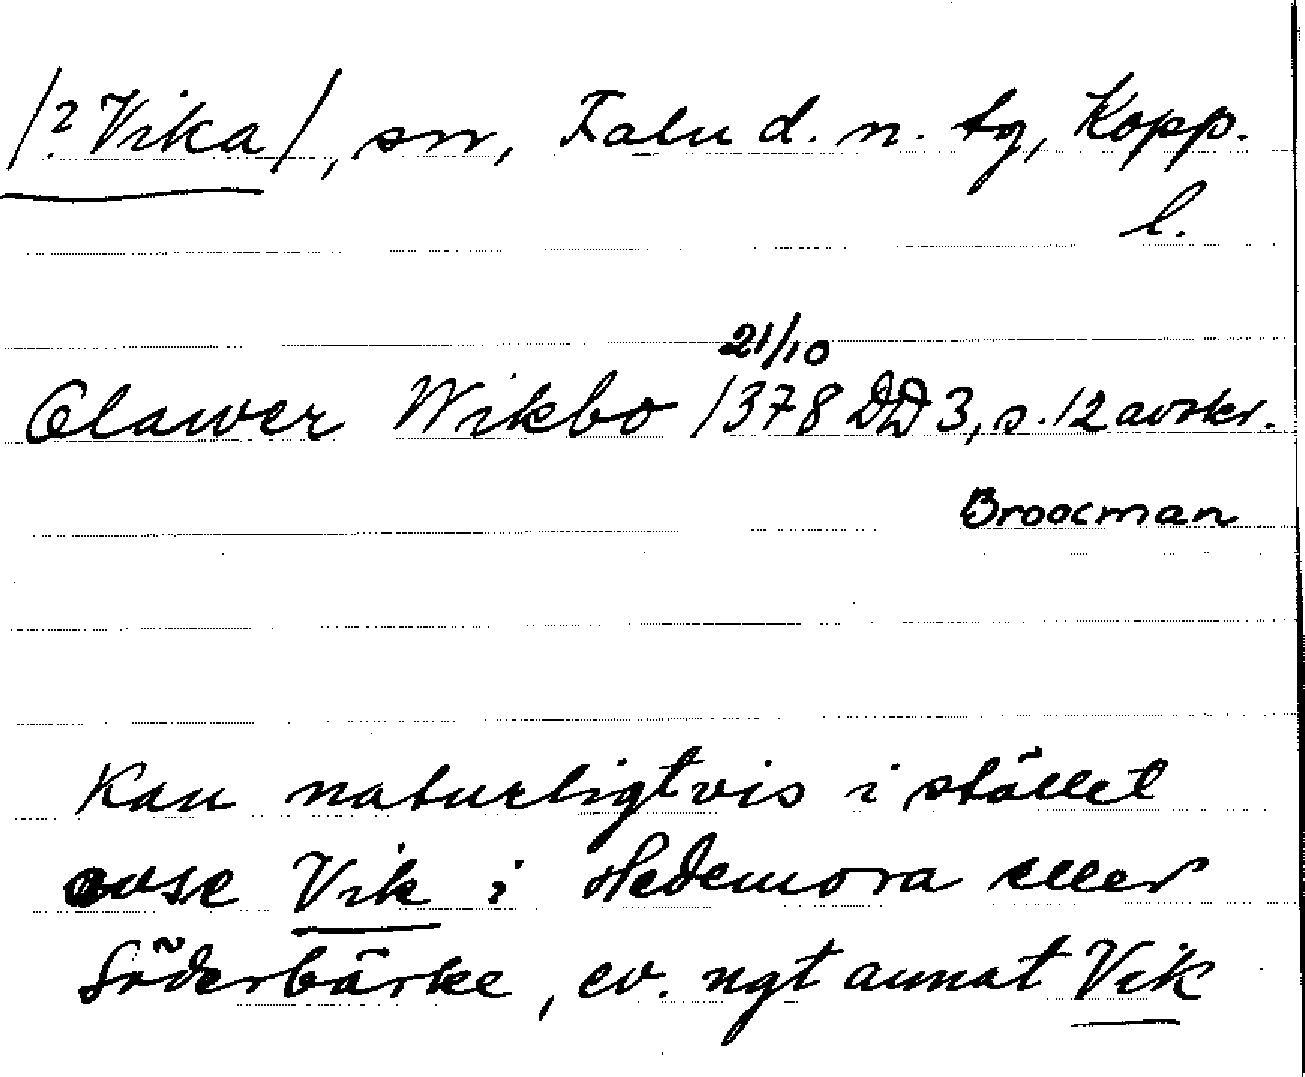 /? Vika/, sn, Falu d. n. tg, Kopp.
l.
21/10
Olawer Wikbo 1378 DD 3, s. 12 avskr.
Broocman
Kan naturligtvis i stället
avse Vik i Hedemora eller
Söderbärke, ev. ngt annat Vik